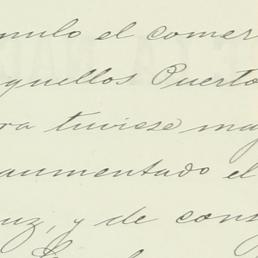 mulo el comer
quellos Puerto
ra tuviese may
aumentado el
uz, y de cons